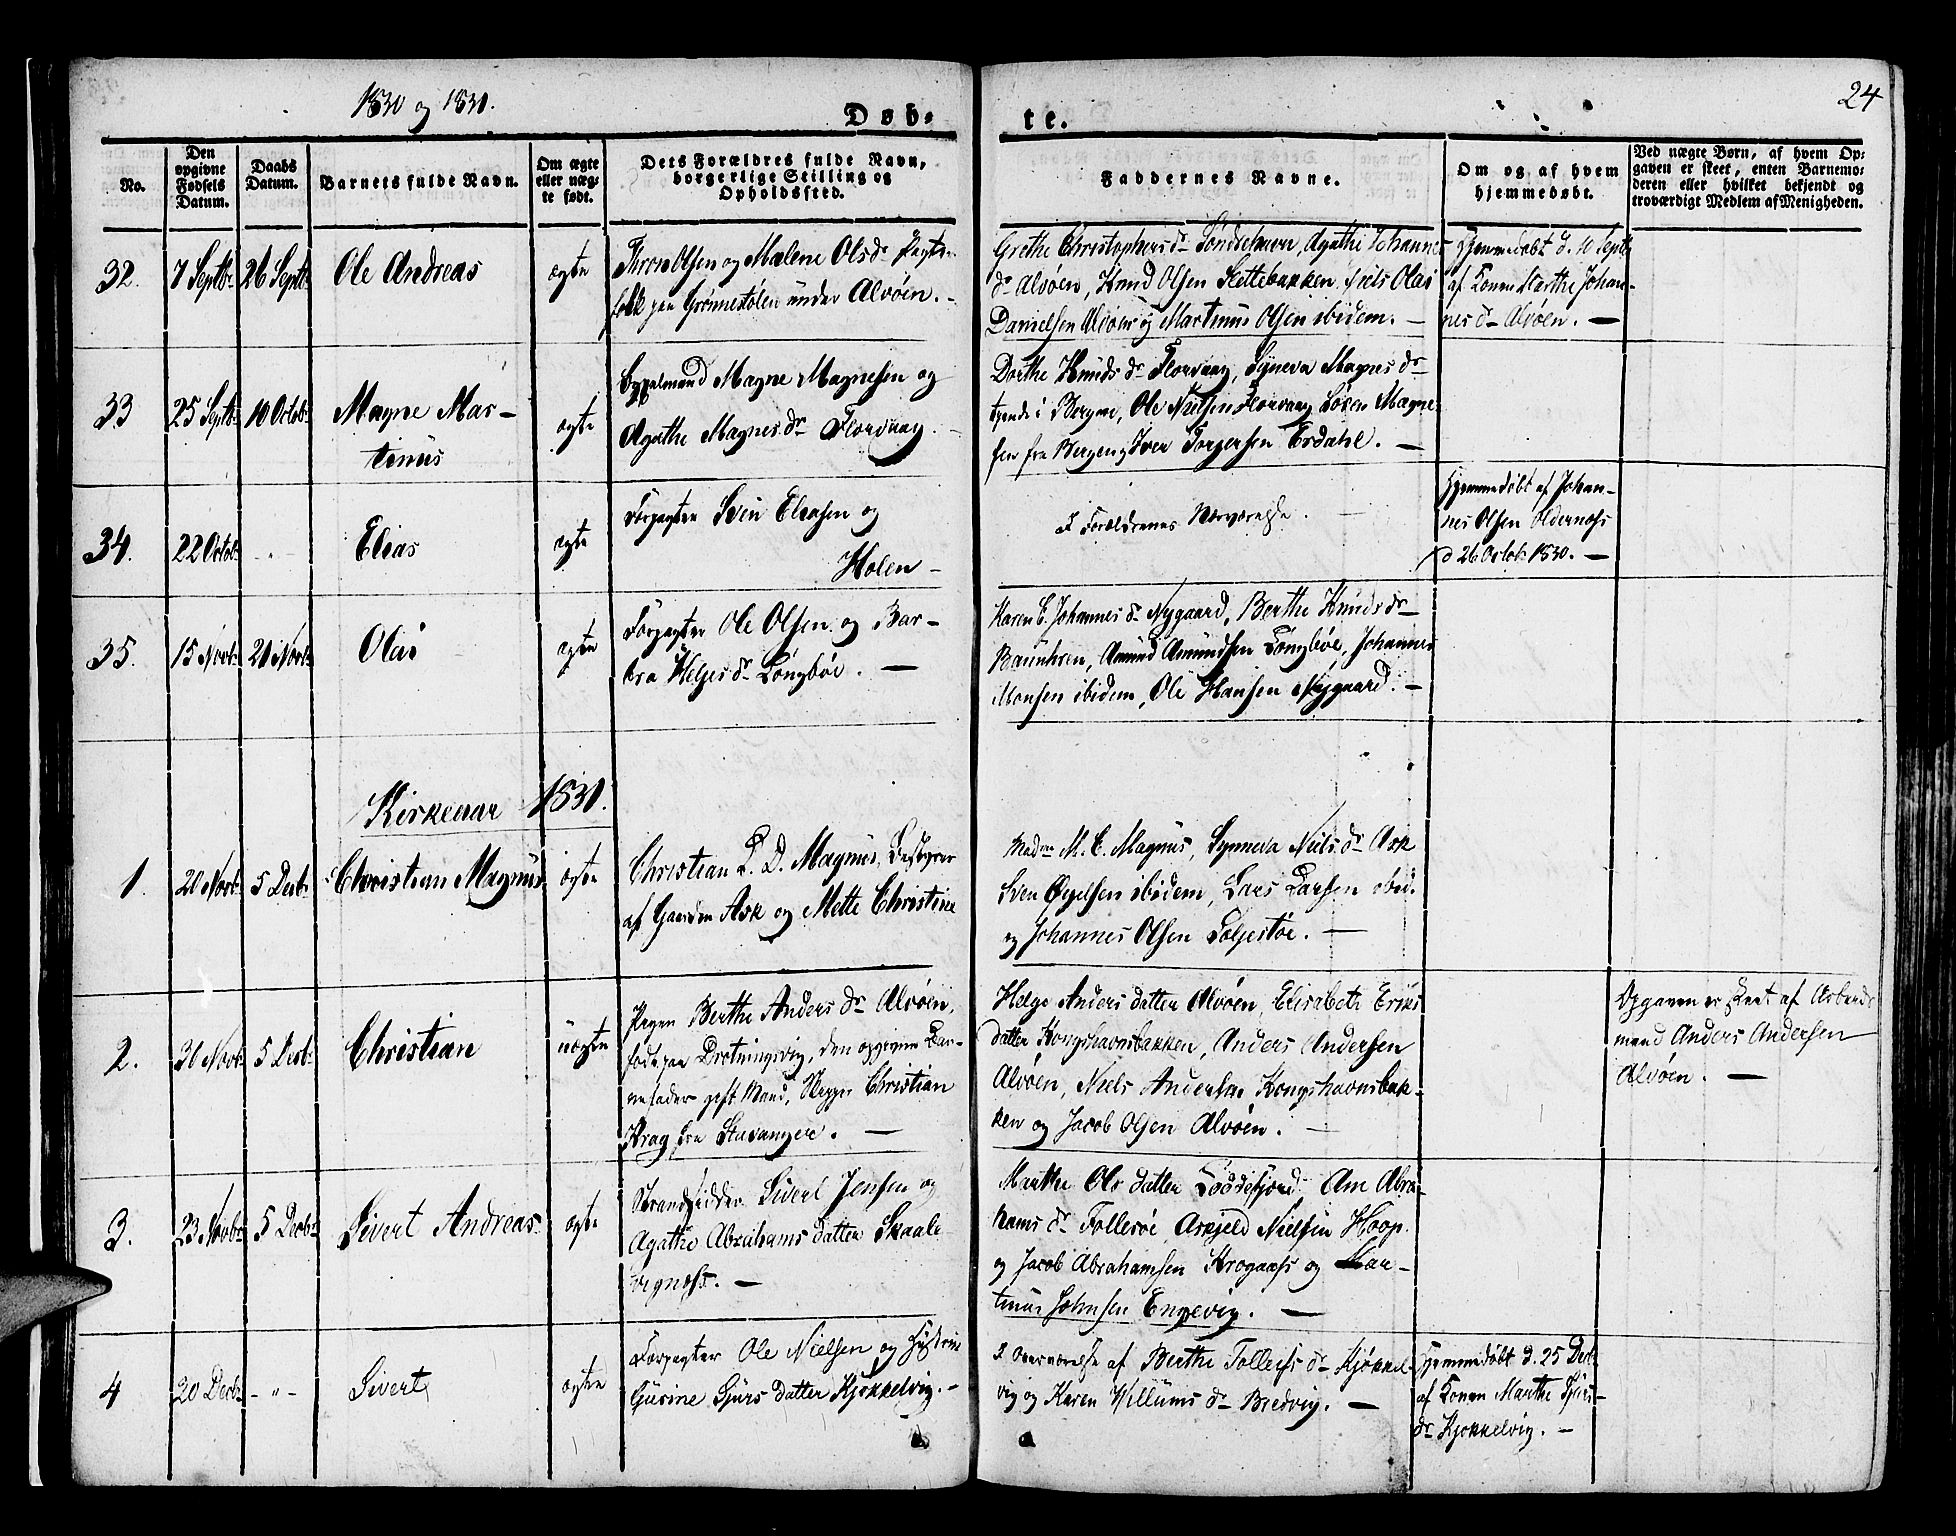 1830 og 1831.
Døb-
te.
24
No.
Den
opgivne
Fødsels
Datum.
Daabs
Datum.
Barnets fulde Navn.
Om ægte
eller uæg-
te født.
Dets Forældres fulde Navn,
borgerlige Stilling og
Opholdssted.
Faddernes Navne.
Om og af hvem
hjemmedøbt.
Ved uægte Børn, af hvem Op-
gaven er skeet, enten Barnemo-
deren eller hvilket bekjendt og
troværdigt Medlem af Menigheden.
32.
7 Septb:
26 Septb:
Ole Andreas
ægte
Olsen og Malene Olsdr
folk paa Grønnestølen under Alvøen.
Grethe Christophersdr Agathe Johannes
dr Alvøen, Knud Olsen Slettebakken, Niels Olai
Danielsen Alvøen og Martinus Olsen ibidem.
Hjemmedøbt d. 10 Septb
af Konen Marthe Johan-
nes dr Alvøen.
33
25 Septb:
10 Octob:
Magne Mar-
tinus
ægte
Magne Magnesen og
Agathe Magnesdr Florvaag.
Dorthe Knuds dr Florvaag, Synneva Magnes dr
tjende i Bergen, Ole Nielsen Florvaag, Magne-
sen fra Bergen og Iver Torgersen Erdahl.
34.
22 Octob:
Elias
ægte
Forpagter Sven Eliasen og
Holen
I Forældrenes Nærværelse.
Hjemmedøbt af Johan-
nes Olsen Oldernæss
d 26 Octob: 1830.
35.
15 Novb:
21 Novb:
Olai
ægte
Forpagter Ole Olsen og Bar-
bra Helges dr Lyngbøe.
Karen E. Johannes dr Nygaard, Berthe Knuds dr
Amund Amundsen Lyngbøe, Johannes
Monsen ibidem, Ole Hansen Nygaard.
Kirkeaar 1831.
1.
20 Novb:
5 Decb:
Christian Magnus
ægte
Christian L. D. Magnus, Bestyrer
af Gaarden Ask og Mette Christine
Madme M. C. Magnus, Synneva Niels dr Ask
Sven ibidem, Lars Larsen ibid.
og Johannes Olsen
2.
30 Novb:
5 Decb:
Christian
uægte
Pigen Berthe Anders dr Alvøen,
født paa Drotningsvig, den opgivne Bar-
nefader gift Mand, Christian
Krag fra Stavanger.
Helge Anders datter Alvøen, Elisabeth Eriks
datter Kongshavnsbakken, Anders Andersen
Alvøen, Niels Andersen Kongshavnsbak-
ken og Jacob Olsen Alvøen.
Opgaven er skeet af Arbeids
mand Anders Andersen
Alvøen.
3.
23 Novb:
5 Decb:
Sivert Andreas
ægte
Strandsidder Sivert Jensen og
Agathe Abrahams datter Skaale
vignæss.
Marthe Ols datter Am Abra-
hams dr Follesøe, Askjeld Nielsen Hoop
og Jacob Abrahamsen Krogaas og Mar-
tinus Johnsen Engevig.
4
20 Decb:
Sivert
ægte
Forpagter Ole Nielsen og Hustrue
Gurine Sjurs datter Kjøkkelvig.
I Overværelse af Berthe Tollefs dr Kjøkkel-
vig og Karen Willums dr Bredvig.
Hjemmedøbt d. 25 Decb:
af Konen Marthe Sjurs-
dr Kjøkkelvig.